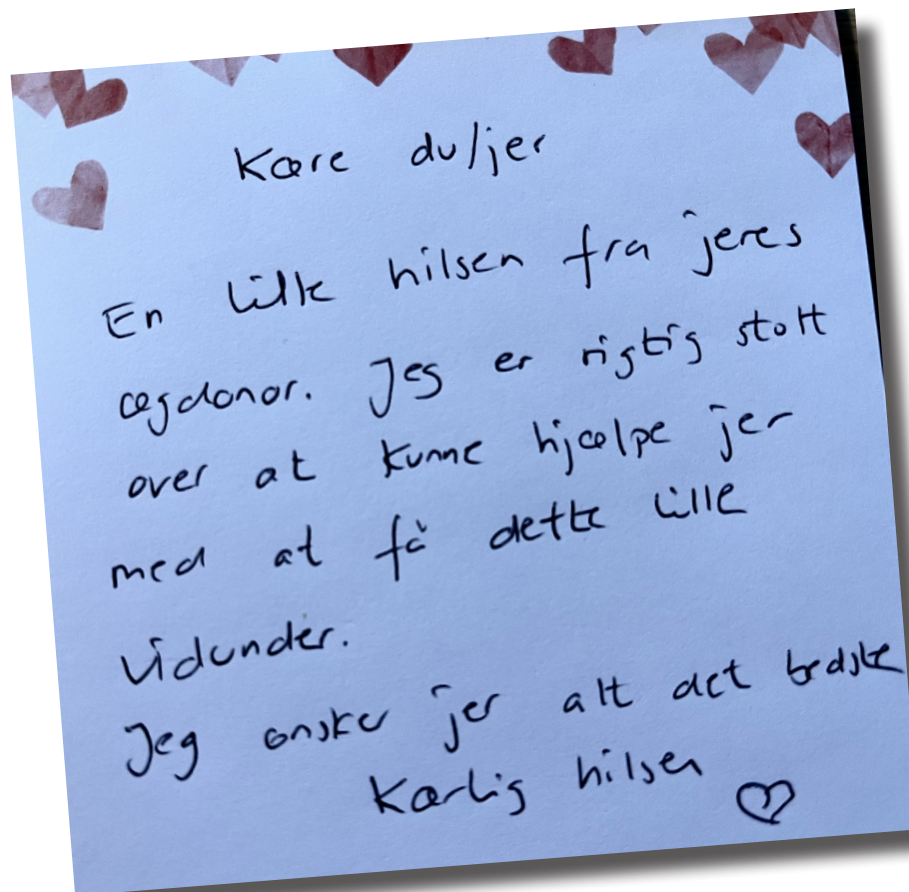 Kære du/jer
En lille hilsen fra jeres
ægdonor. Jeg er rigtig stolt
over at kunne hjælpe jer
med at få dette lille
vidunder.
Jeg ønsker jer alt det bedste
Kærlig hilsen